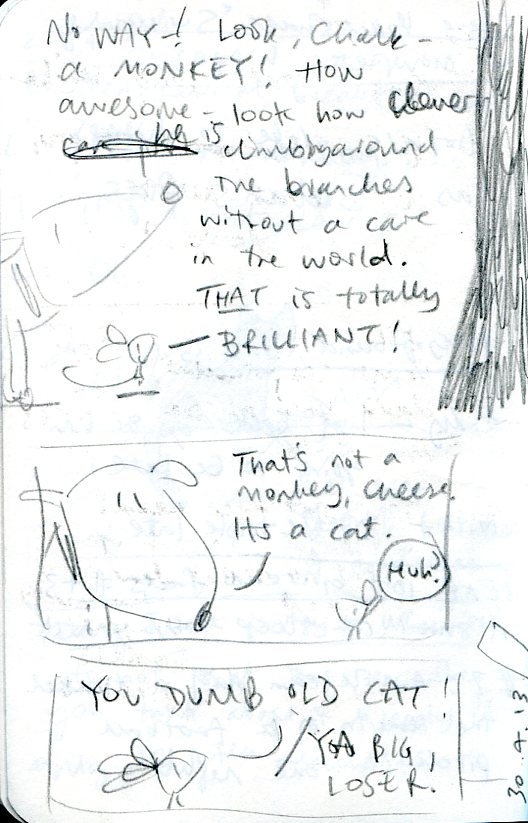 No WAY! Look, Chalk -
a MONKEY! How
awesome - look how clever
he is climbing around
the branches
without a care
in the world.
THAT is totally
BRILLIANT!
That's not a
monkey, cheese.
It's a cat.
Huh?
YOU DUMB OLD CAT!
YA BIG
LOSER!
30.4.13